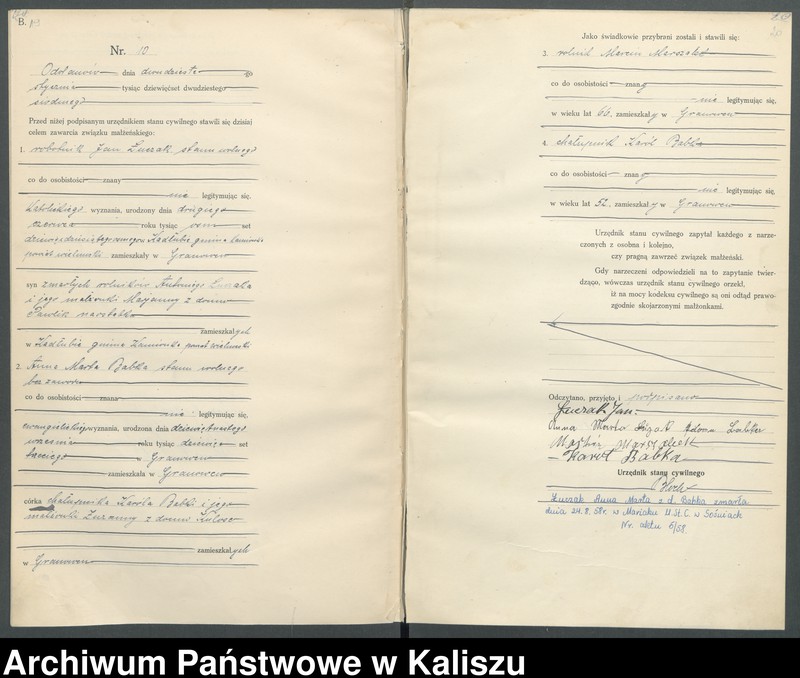 B.
Nr. 10
Odolanów dnia dwudzieste go
stycznia tysiąc dziewięćset dwudziestego
siódmego
Przed niżej podpisanym urzędnikiem stanu cywilnego stawili się dzisiaj
celem zawarcia związku małżeńskiego:
1. robotnik Jan Łuczak stanu wolnego
co do osobistości znany
nie legitymując się,
katolickiego wyznania, urodzony dnia drugiego
czerwca roku tysiąc osm set
gmina
powiat wieluński zamieszkały w Granowcu
syn zmarłych rolników Antoniego Łuczaka
i jego małżonki Maryanny z domu
Pawlik
zamieszkałych
w Kadłubie gmina powiat wieluński
2. Anna Marta Babka stanu wolnego
bez zawodu
co do osobistości znana
nie legitymując się,
ewangelickiej wyznania, urodzona dnia dziewiętnastego
września roku tysiąc dziewięć set
trzeciego w Granowcu
zamieszkała w Granowcu
córka chałupnika Karóla Babki i jego
małżonki Zuzanny z domu
zamieszkałych
w Granowcu
Jako świadkowie przybrani zostali i stawili się:
3. rolnik Marcin
co do osobistości znany
nie legitymując się,
w wieku lat 66, zamieszkały w Granowcu
4. chałupnik Karól Babka
co do osobistości znany
nie legitymując się,
w wieku lat 52, zamieszkały w Granowcu
Urzędnik stanu cywilnego zapytał każdego z narze-
czonych z osobna i kolejno,
czy pragną zawrzeć związek małżeński.
Gdy narzeczeni odpowiedzieli na to zapytanie twier-
dząco, wówczas urzędnik stanu cywilnego orzekł,
iż na mocy kodeksu cywilnego są oni odtąd prawo-
zgodnie skojarzonymi małżonkami.
Odczytano, przyjęto i podpisano
Łuczak Jan
Anna Marta
Karol Babka
Urzędnik stanu cywilnego
Łuczak Anna Marta z d. Babka zmarła
dnia 24.8.58r. w U.St.C. w Sośniach
Nr. aktu 6/58.
Archiwum Państwowe w Kaliszu